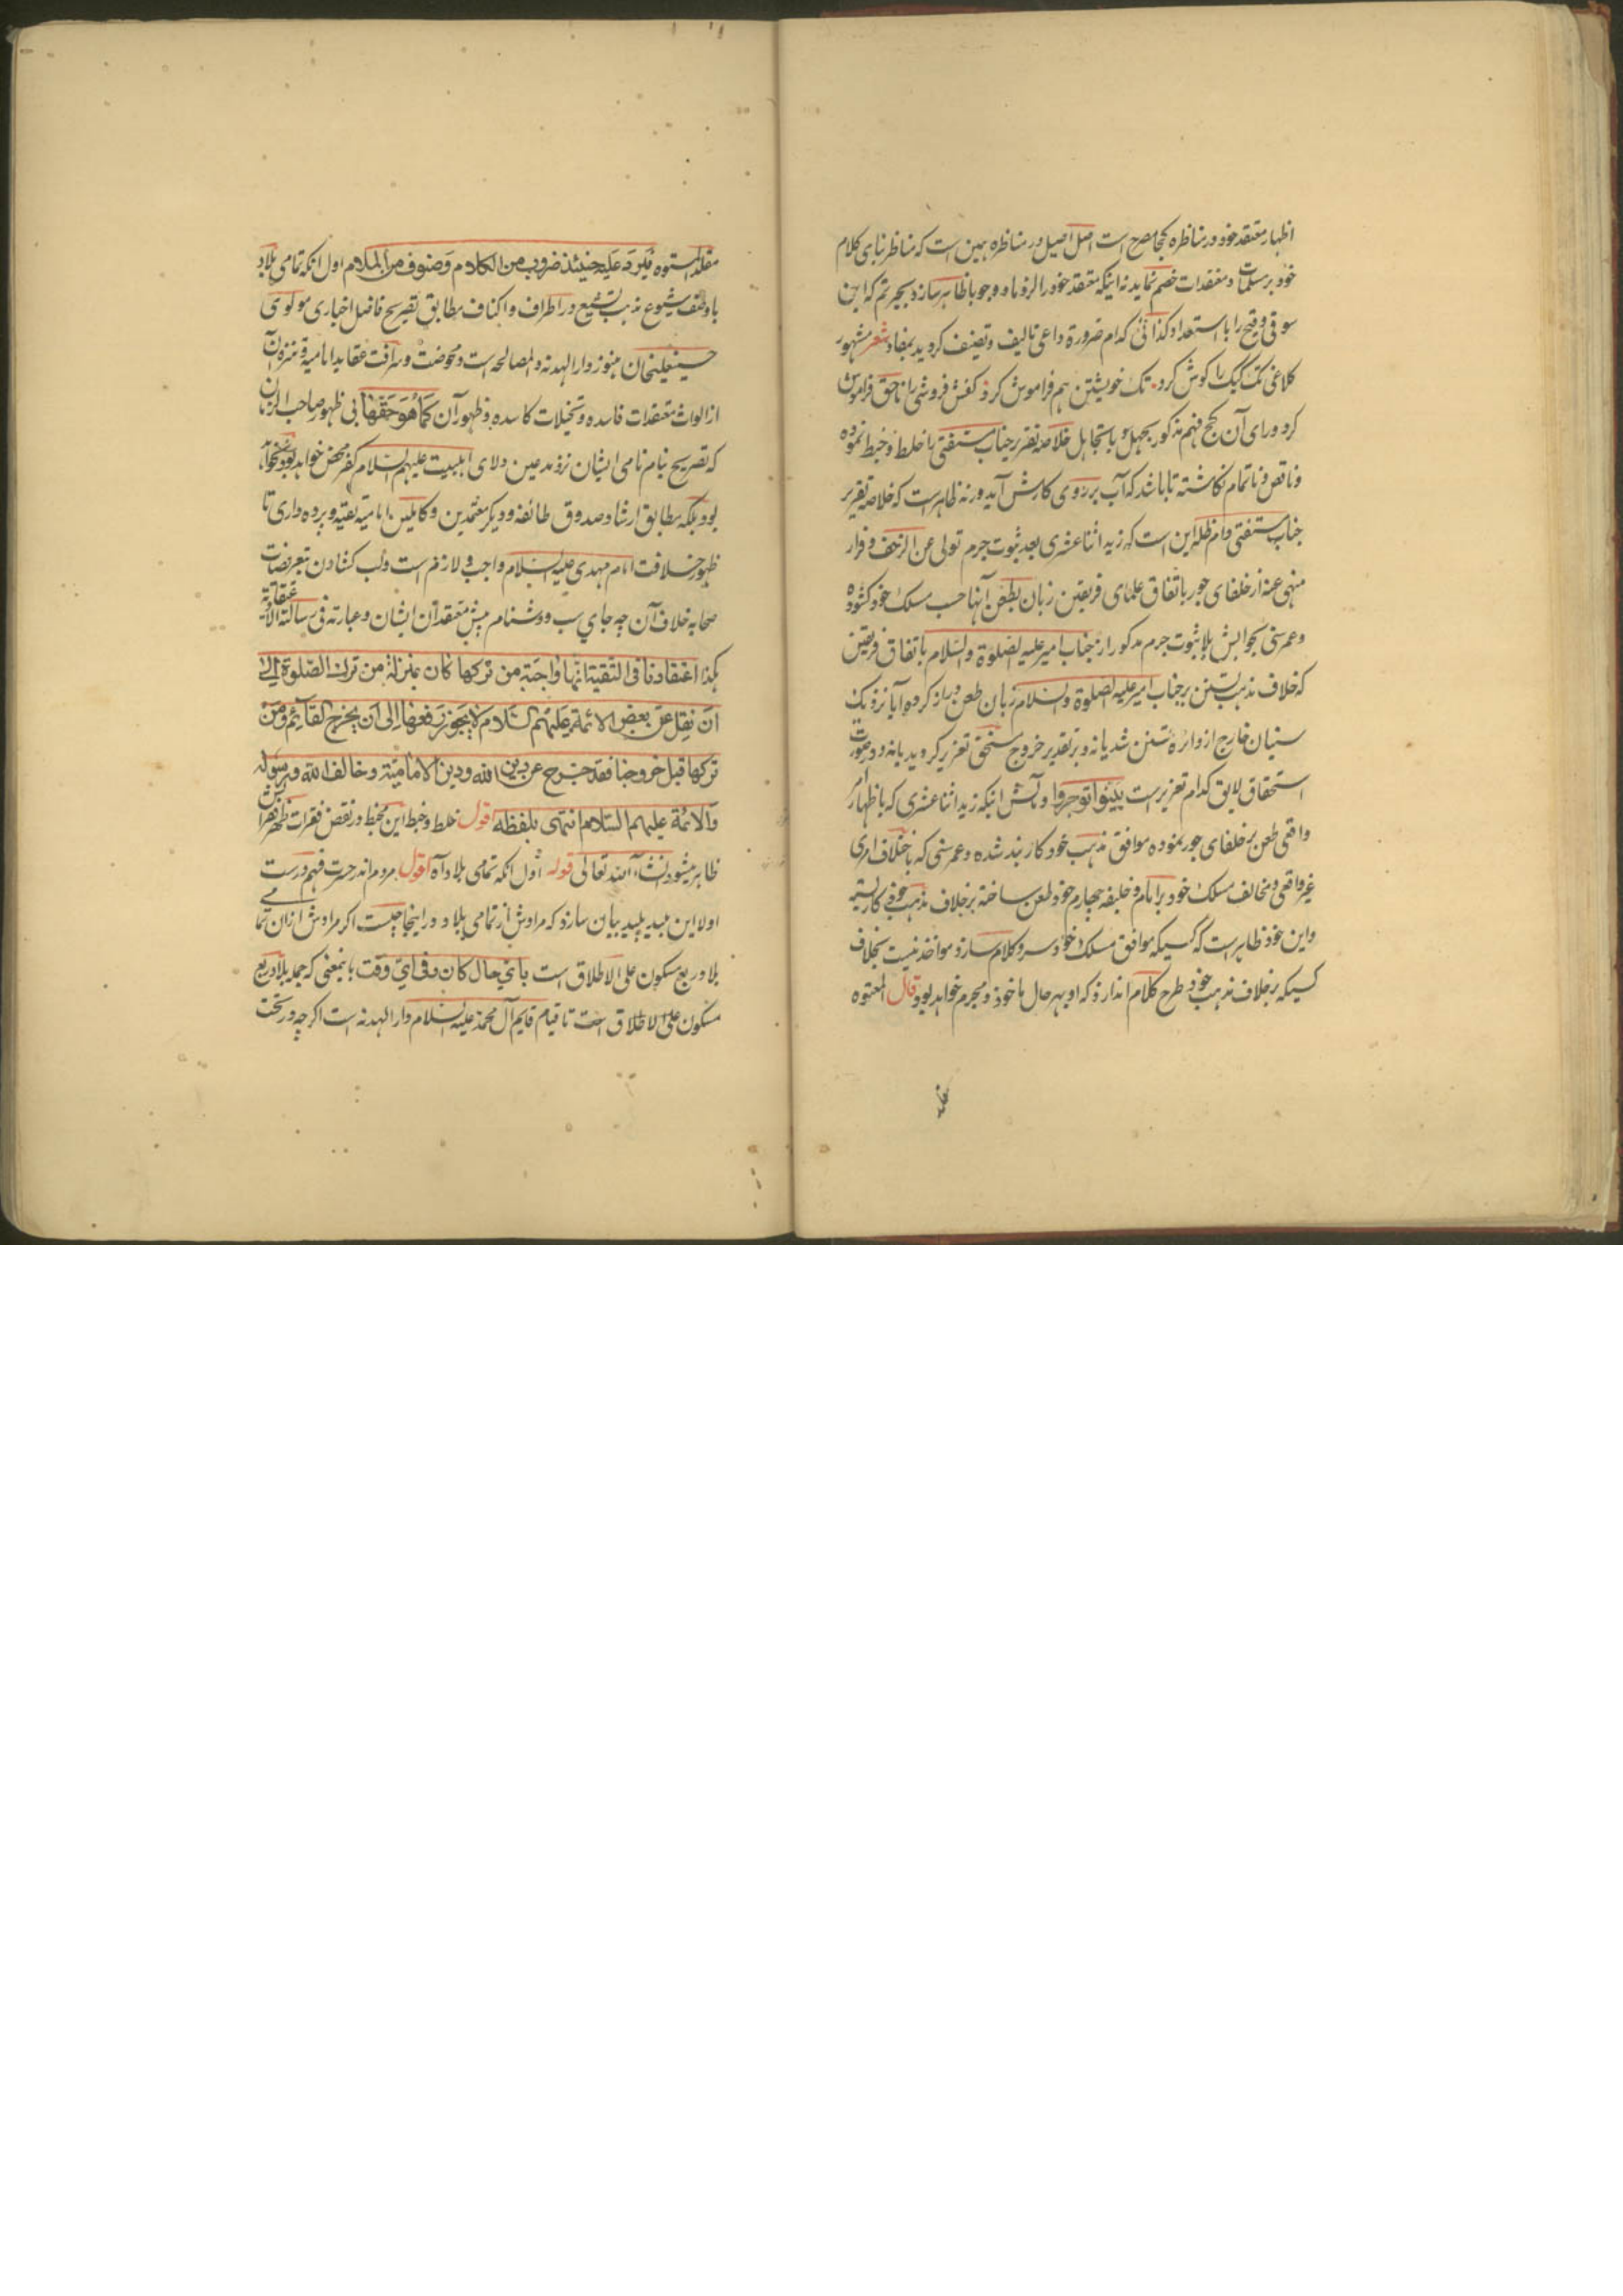 اظهار معتقد خود در مناظره کجا مصرح است اصل اصیل در مناظره همین است که مناظر بنای کلام
خود بر مسلمات و معتقدات خصم نماید نه اینکه معتقد خود را لزوما و وجوبا ظاهر سازد بحیرتم که این
سوقی وقیح را با استعداد کذائی کدام ضرورة داعی تالیف و تصنیف کردید بمفاد شعر مشهور
کلاغی تک کبک را کوش کرد تک خویشتن هم فراموش کرد کفش فروشی را ناحق فراموش
کرد ورای آن کج فهم مذکور بجهل و یا بتجاهل خلاصه تقریر جناب مستفتی با خلط و خبط نموده
و ناقص و ناتمام نکاشته تا باشد که آب بر روی کارش آید ورنه ظاهر است که خلاصه تقریر
جناب مستفتی دام ظله این است که زید اثنا عشری بعد ثبوت جرم تولی عن الزحف و فرار
منهی عنه از خلفای جور باتفاق علمای فریقین زبان بطعن آنها حسب مسلک خود کشوده
و عمر سنی بجوابش بلا ثبوت جرم مذکور از جناب امیر علیه الصلوة والسلام باتفاق فریقین
که خلاف مذهب تسنن بر جناب امیر علیه الصلوة والسلام زبان طعن دراز کرده آیا نزدیک
سنیان خارج از دائره تسنن شد یا نه و بر تقدیر خروج مستحق تعزیر کردید یا نه و در صورت
استحقاق لایق کدام تعزیر است بینوا توجروا و آلش اینکه زید اثنا عشری که باظهار امر
واقعی طعن بر خلفای جور نموده موافق مذهب خود کاربند شده و عمر سنی که بخلاف امری
غیر واقعی و مخالف مسلک خود بر امام و خلیفه چهارم خود طعن ساخته بر خلاف مذهب خود کاربسته
و این خود ظاهر است که کسیکه موافق مسلک خود سر و کلام سازد مواخذ نیست بخلاف
کسیکه بر خلاف مذهب خود طرح کلام اندازد که او بهر حال ماخوذ و مجرم خواهد بود قال المعتوه
مقلد المستوه فیرد علیه حینئذ ضروب من الکلام و صنوف من الملام اول آنکه تمامی بلاد
با وصف شیوع مذهب تشیع در اطراف و اکناف مطابق تصریح فاضل اخباری مولوی
حسینعلیخان هنوز دار الهدنه والمصالحه است و محوضت و صرافت عقاید امامیه و تنزه آن
از الواث معتقدات فاسده و تخیلات کاسده و ظهور آن کما هو حقها بی ظهور صاحب الزمان
که تصریح بنام نامی ایشان نزد مدعین ولای اهلبیت علیهم السلام کفر محض خواهد بود نخواهد
بود بلکه مطابق ارشاد صدوق طائفه و دیکر معتمدین و کاملین امامیه تقیه و پرده داری تا
ظهور خلافت امام مهدی علیه السلام واجب و لازم است و لب کشادن بتعریضات
صحابه خلاف آن چه جای سب و دشنام پیش معتقدان ایشان و عبارته فی رسالة الاعتقادیه
هکذا اعتقادنا فی التقیة انها واجبة من ترکها کان بمنزلة من ترک الصلوة الی
ان نقل عن بعض الائمة علیهم السلام لا یجوز رفعها الی ان یخرج القایم و من
ترکها قبل خروجه فقد خرج عن دین الله و دین الامامیة و خالف الله و رسوله
والائمة علیهم السلام انتهی بلفظه اقول خلط و خبط این مخبط در نقض فقرات
ظاهر میشود انشاء الله تعالی قوله اول آنکه تمامی بلاد آه اقول مردم اندر حسرت فهم درست
اولا این بلید پلید بیان سازد که مرادش از تمامی بلاد در اینجا چیست اکر مرادش ازان تمامی
بلاد ربع مسکون علی الاطلاق است بای حال کان و فی ای وقت باینمعنی که جمله بلاد ربع
مسکون علی الاطلاق است تا قیام قایم آل محمد علیه السلام دار الهدنه است اکرچه در تحت